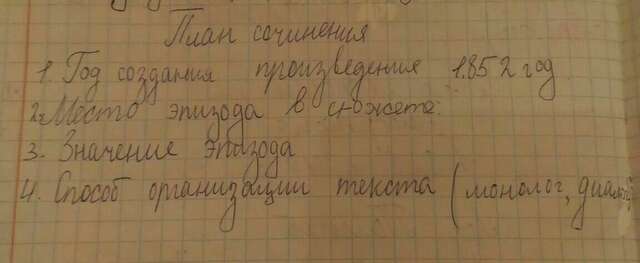 План сочинения
1. Год создания произведения 1852 год
2. Место эпизода в сюжете.
3. Значение эпизода
4. Способ организации текста (монолог, диалог